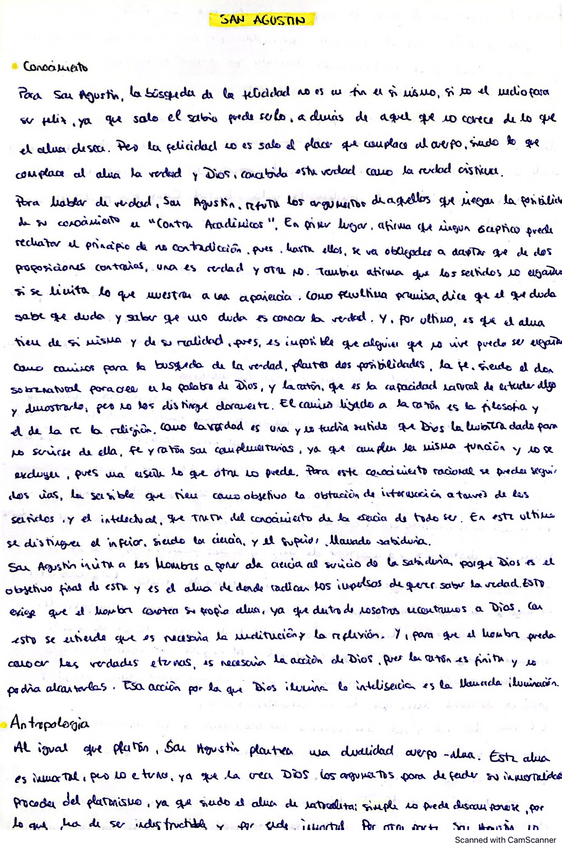 SAN AGUSTIN
• Conocimiento
Para San Agustín, la búsqueda de la felicidad no es un fin en si mismo, si no el medio para
ser feliz, ya que solo el sabio puede serlo, además de aquel que no carece de lo que
el alma desea. Pero la felicidad no es solo el placer que complace al cuerpo, siendo lo que
complace al alma la verdad y Dios, concebida esta verdad como la verdad cristiana.
Para hablar de verdad, San Agustín, refuta los argumentos de aquellos que niegan la posibilid
de su conocimiento en "Contra Académicos". En primer lugar, afirma que ningun esceptico puede
rechazar el principio de no contradicción, pues, hasta ellos, se ven obligados a aceptar que de dos
proposiciones contrarias, una es verdad y otra no. Tambien afirma que los sentidos no engañan
si se limita lo que muestran a una apariencia. Como penultima premisa, dice que el que duda
sabe que duda y saber que uno duda es conocer la verdad. Y, por ultimo, es que el alma
tiene de si misma y de su realidad, pues, es imposible que alguien que no vive puede ser engaña
Como caminos para la busqueda de la verdad, plantea dos posibilidades, la fe, siendo el don
sobrenatural para creer en la palabra de Dios, y la razón, que es la capacidad natural de entender algo
y demostrarlo, pero no los distingue claramente. El camino ligado a la razón es la filosofia y
el de la fe la religión. Como la verdad es una y no tendria sentido que Dios la hubiera dado para
no servirse de ella, fe y razón son complementarias, ya que cumplen la misma función y no se
excluyen, pues una enseña lo que otra no puede. Para este conocimiento racional se pueden seguir
dos vias, la sensible que tiene como objetivo la obtención de información a través de los
sentidos y el intelectual, que trata del conocimiento de la esencia de todo ser. En este ultimo
se distinguen el inferior, siendo la ciencia, y el superior, llamado sabiduria.
San Agustín invita a los hombres a poner la ciencia al servicio de la sabiduria, porque Dios es el
objetivo final de esta y es el alma de donde radican los impulsos de querer saber la verdad. Esto
exige que el hombre conozca su propio alma, ya que dentro de nosotros encontramos a Dios. Con
esto se entiende que es necesaria la meditación y la reflexión. Y, para que el hombre pueda
conocer las verdades eternas, es necesaria la acción de Dios, pues la razón es finita y no
podria alcanzarlas. Esa acción por la que Dios ilumina la inteligencia es la llamada iluminación.
• Antropologia
Al igual que platón, San Agustín plantea una dualidad cuerpo-alma. Este alma
es inmortal, pero no eterna, ya que la crea Dios. Los argumentos para defender su inmortalidad
proceden del platonismo, ya que siendo el alma de naturaleza simple no puede descomponerse, por
lo que, ha de ser indestructible y por ende inmortal. Por otra parte San Agustín no
Scanned with CamScanner